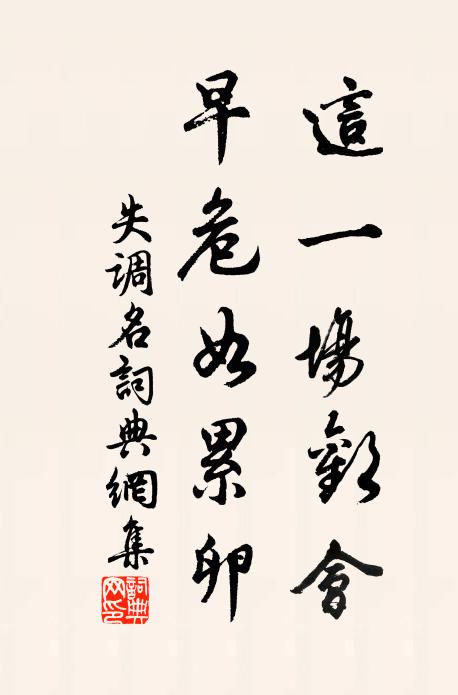 這一場歡會
早危如累卵
失調名詞典網集
詞典网印